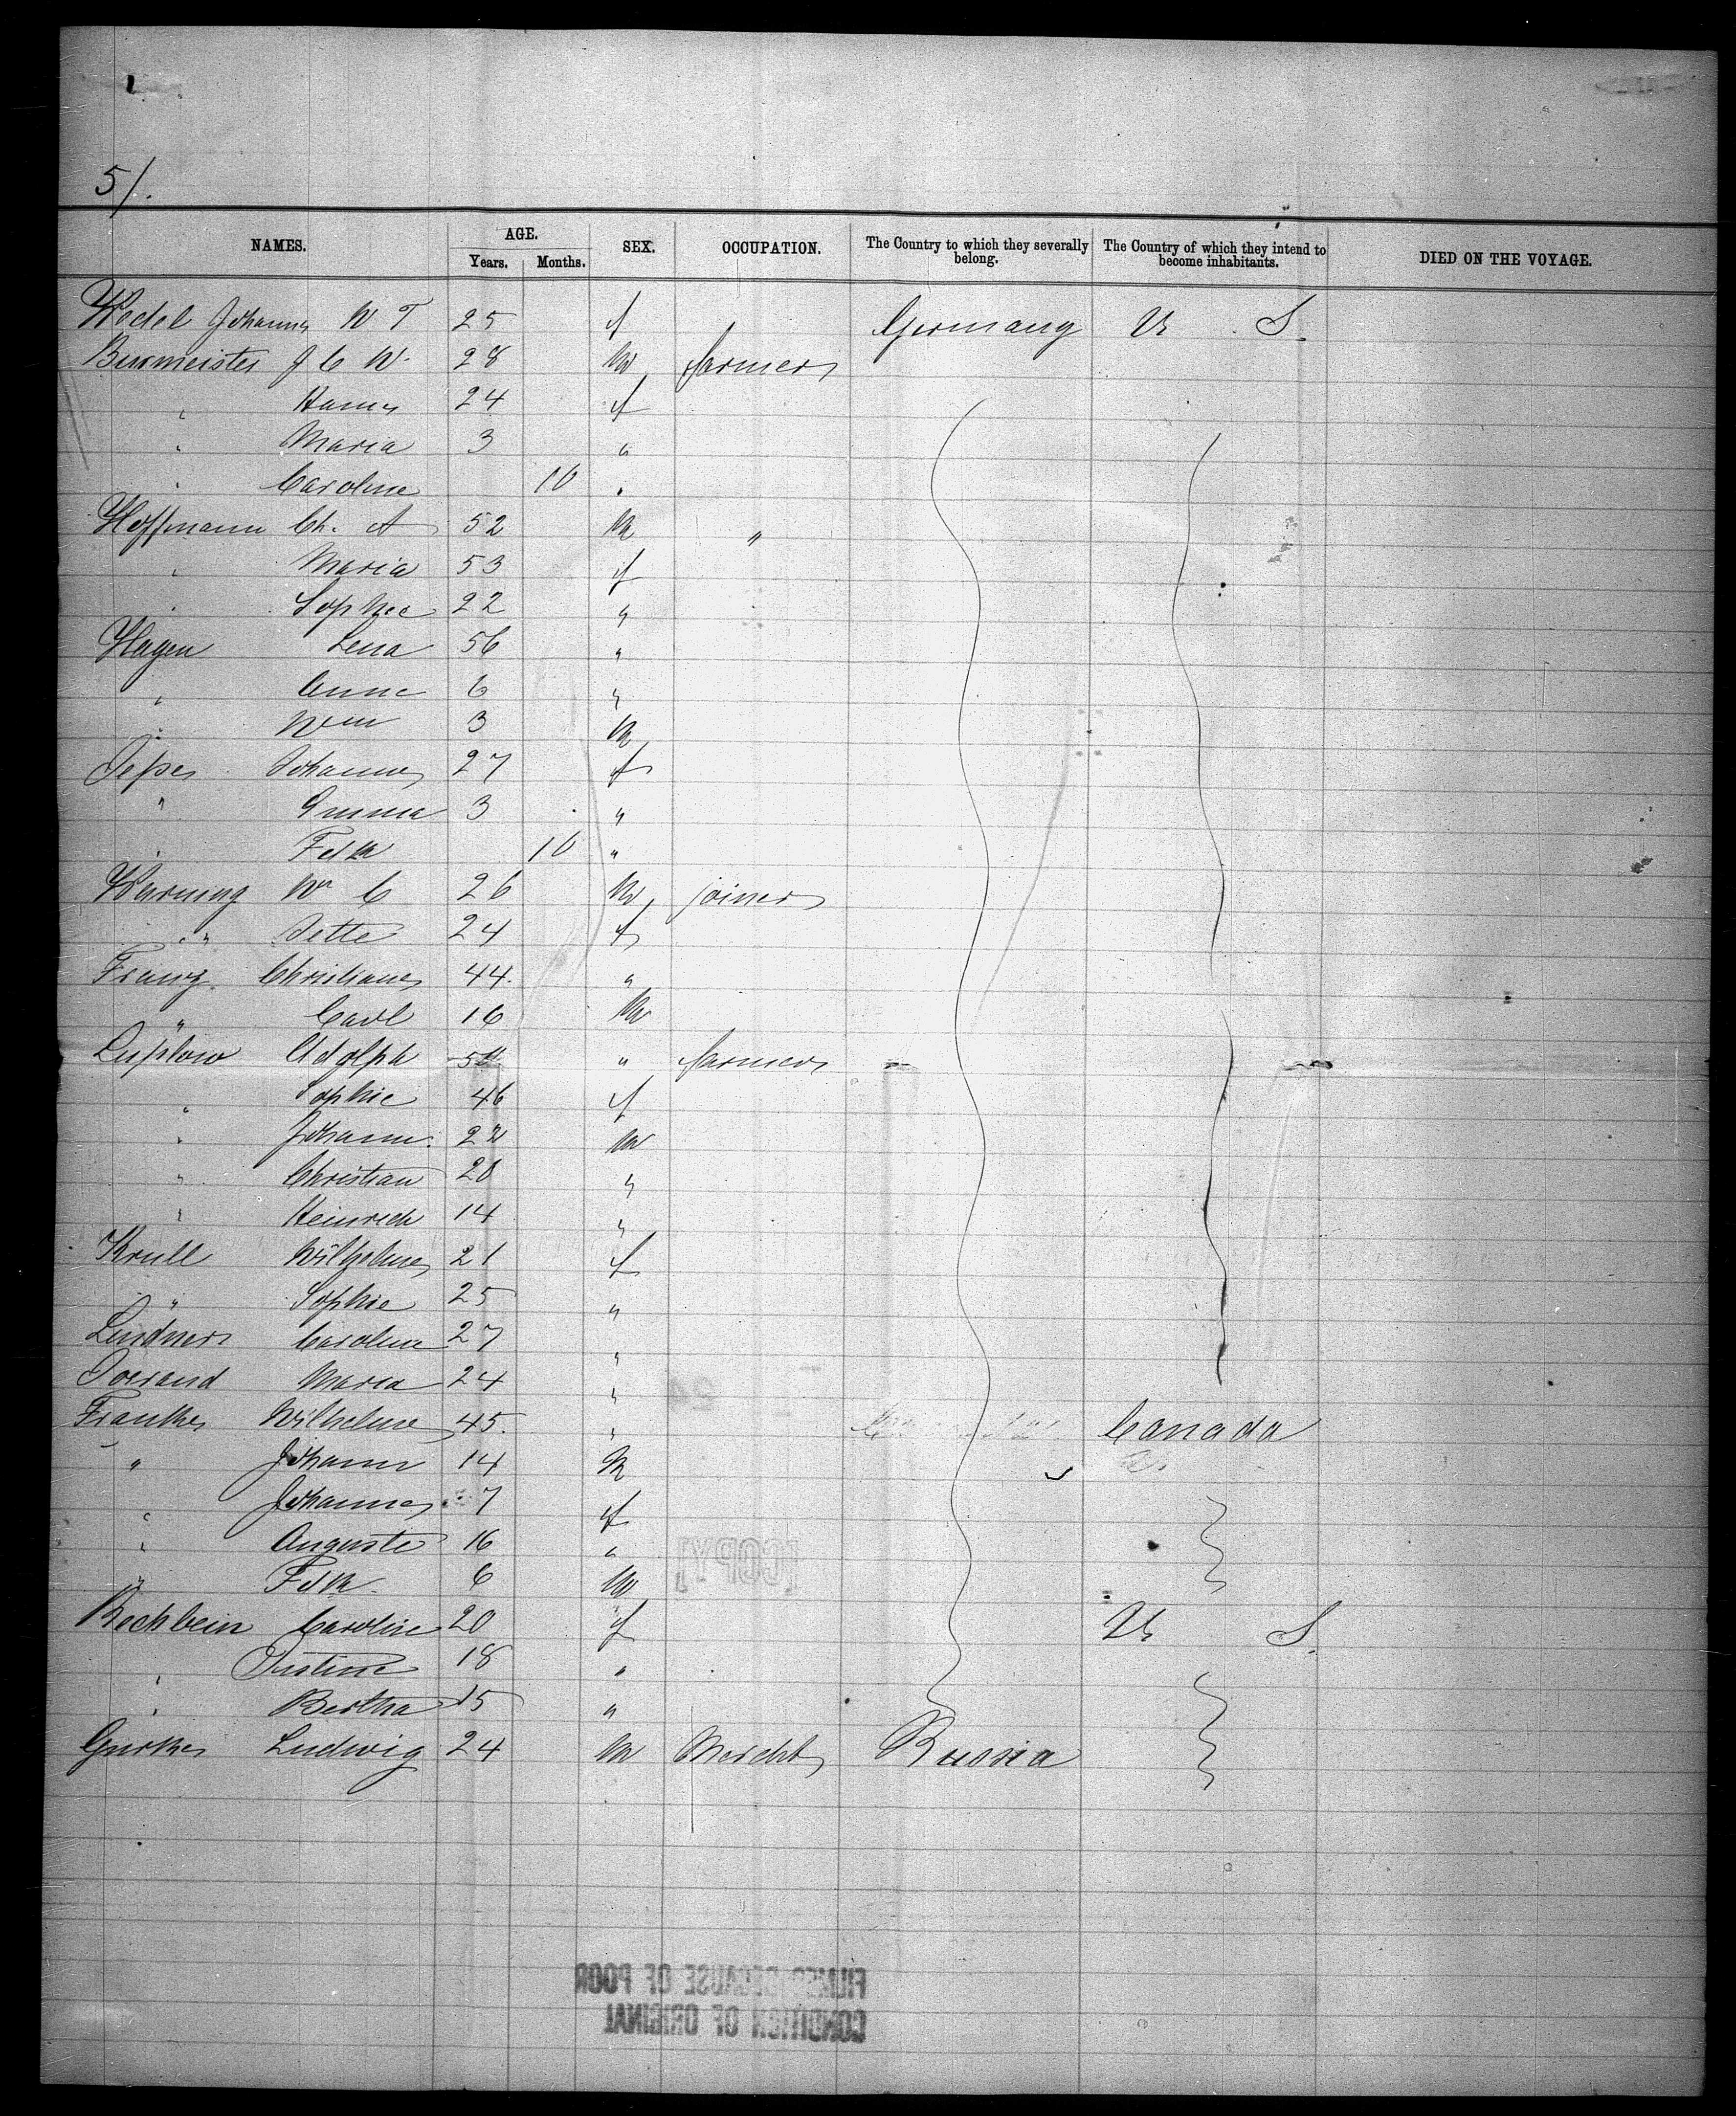 5/.
NAMES. AGE. SEX. OCCUPATION. The Country to which they severally belong. The Country of which they intend to become inhabitants. DIED ON THE VOYAGE.
Years. Months.
Wedel Johanna W T 25 f Germany U S.
Burmeister J C W. 28 m farmer
" Hanna 24 f
" Maria 3 "
" Caroline 10 "
Hoffmann Ch. A 52 m "
" Maria 53 f
" Sophie 22 "
Hagen Lena 56 "
" Anne 6 "
" Wm 3 m
Johanna 27 f
" Emma 3 "
" Fdk 10 "
Warning Wm C 26 m joiner
" Jette 24 f
Franz Christiane 44. "
" Carl 16 m
Luplow Adolph "  farmer
" Sophie 46 f
" Johann. m
" Christian 20 "
" Heinrich 14 "
Krull Wilhelmine 21 f
" Sophie 25 "
Lindner Caroline 27 "
Maria 24 "
Franke Wilhelmine 45. " Canada
" Johann 14 m
" Johanna 7 f
" Auguste 16 "
" Fdk. 6 m
Rechbein Caroline 20 f U S.
" Justine 18 "
" Bertha 15 "
Gurke Ludwig 24 m Mercht Russia
[COPY]
FILMED BECAUSE OF POOR
CONDITION OF ORIGINAL